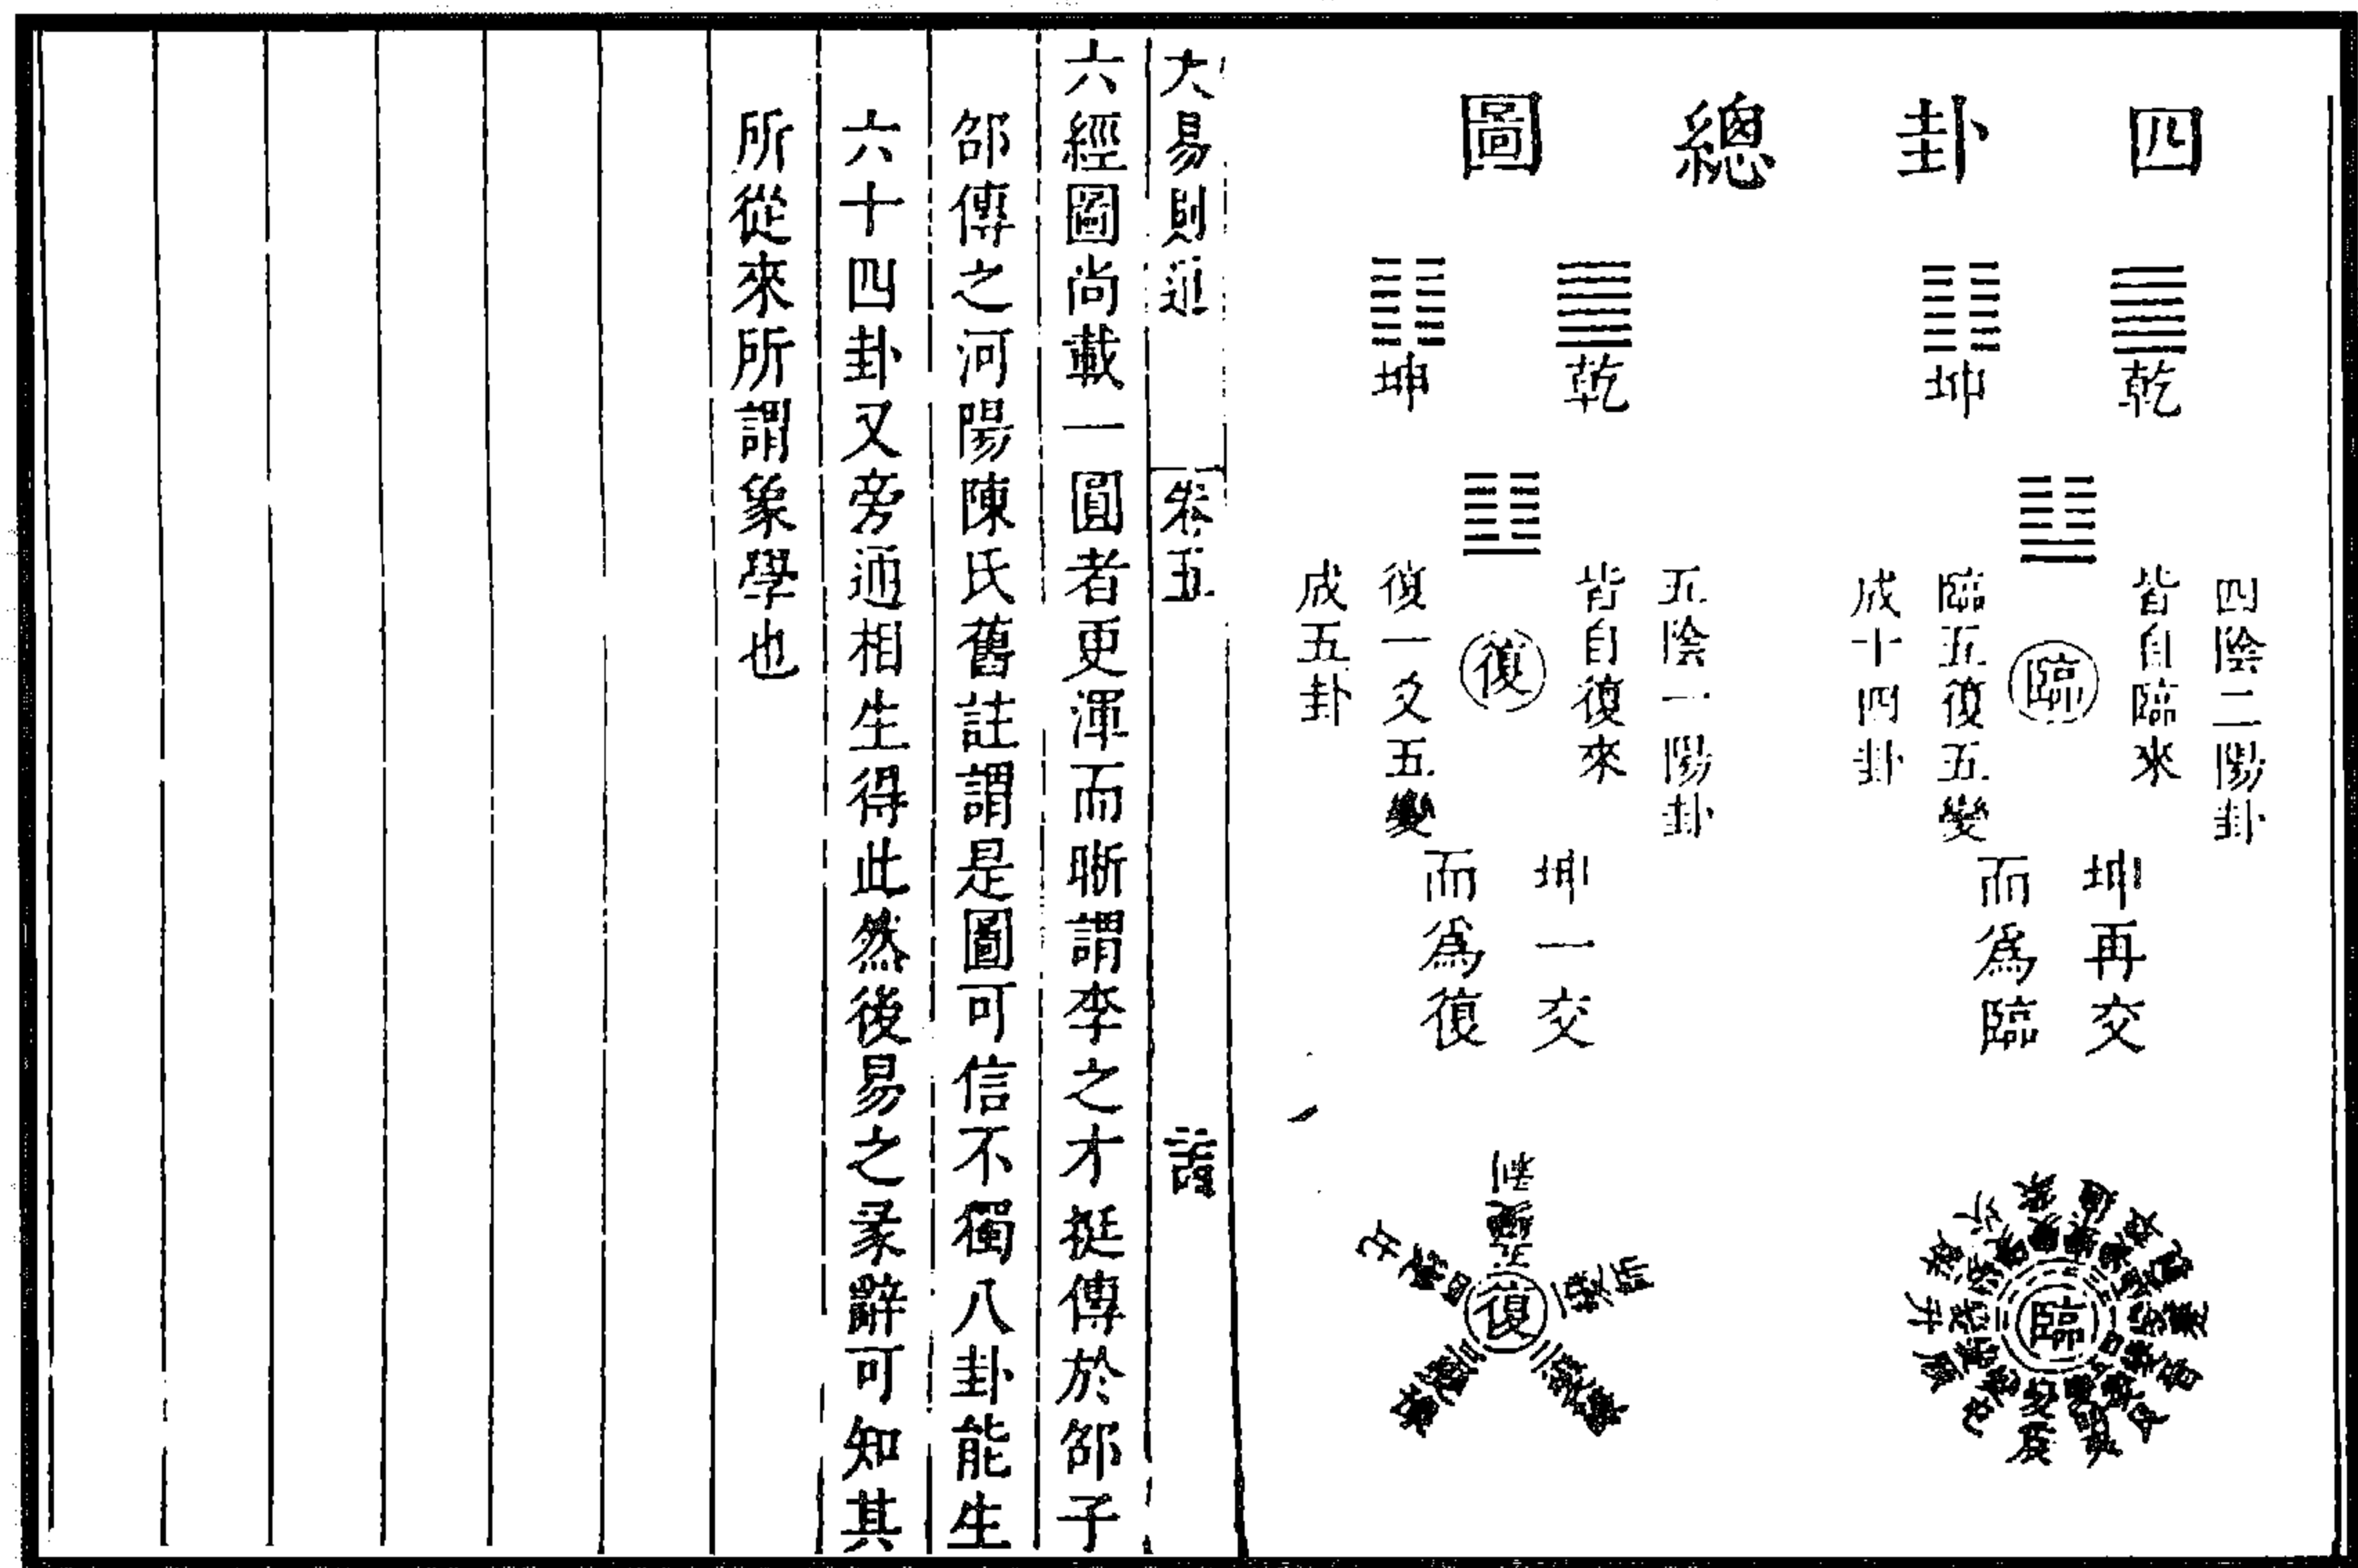 四卦總圖
乾
坤
四陰二陽卦
皆自臨來
臨
臨五復五變
成十四卦
坤再交
而為臨
臨
乾
坤
五陰一陽卦
皆自復來
復
復一爻五變
成五卦
坤一交
而為復
復
大易則通
卷五
六經圖尚載一圓者更渾而晣謂李之才挺傳於邵子
邵傳之河陽陳氏舊註謂是圖可信不獨八卦能生
六十四卦又旁通相生得此然後易之彖辭可知其
所從來所謂象學也